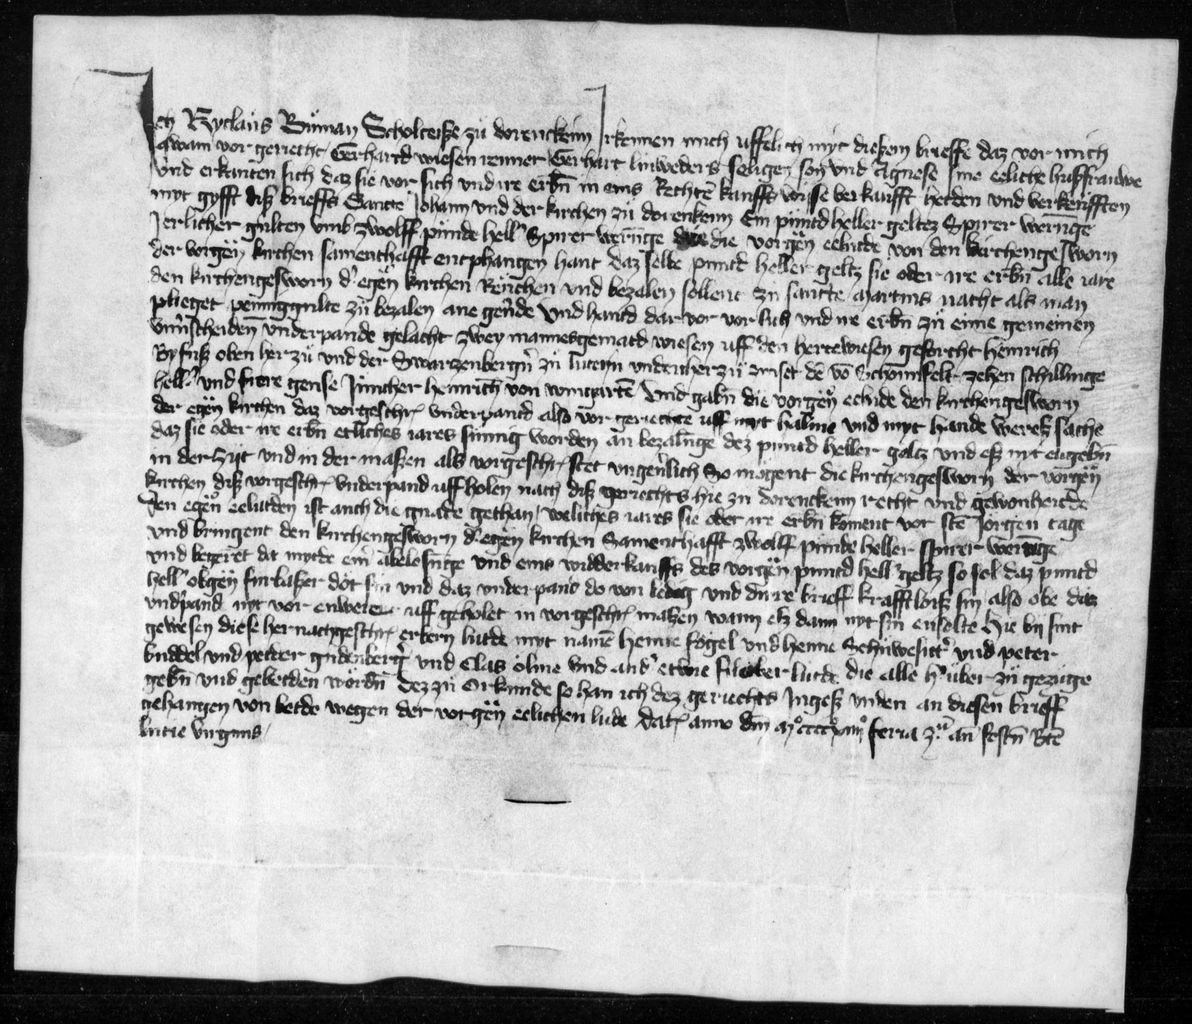 Ich Nyclaus Buman Scholteisze zu dorenckeim Irkennen mich uffelich myt dieszem brieffe daz vor mich
qwam vor geriecht Gerhart wiesen renner Gerhart linweders seligen son und Agnese sine eeliche husffrauwe
Und erkanten sich daz sie vor sich und ire erbn in eins Rechte kauffs wise verkaufft hetden und verkeufften
myt gyfft disz brieffs Sancte Johann und der kirchen zu dorenkeim Ein puntd heller geltez Spirer werunge
Jerlicher gulten umb zwolff punde hell Spirer werunge die vorgen eelude von den kirchengesworn
der vorgen kirchen samenthafft entphangen hant daz selbe puntd heller geltz sie oder ire erbn alle iare
den kirchengesworn d egen kirchen Reichen und bezalen sollent zu sancte Martins nacht als man
plieget penninggulte zu bezalen ane geude Und hantd dar vor vor sich und ire erbn zu eime gemeinen
unuscheiden underpande gelacht zwey mannesgematd wiesen uff den hertewiesen geforcht heinrich
oben her zu und der Swarzenbergn zu lutern undenher zu zinset de vo Schonnfelt zehen schillinge
hell und fiere gense Juncher heinrich von wingarte Und gabn die vorgen eelude den kirchengesworn
der egen kirchen daz vorgeschr underpantd also vor geriechte uff myt halme und myt hande weresz sache
daz sie oder ire erbn etliches iares sumig worden an bezalunge dez puntd heller geltz und esz nyt engebn
in der zijt und in der maszen als vorgeschr stet ungeuerlich So mogent die kirchengesworn der vorgen
kirchen disz vorgeschr underpand uffholen nach disz geriechts hie zu dorenckeim recht und gewonheide
Den egen eelutden ist auch die gnade gethan weliches iares sie oder ire erbn koment vor ste Jorgen tage
und bringent den kirchengesworn d egen kirchen Samenthafft zwolff punde heller spirer werunge
und begeret da mytde einr abelesunge und eins widderkauffs des vorgen puntd hell geltz so sol daz puntd
hell obgen furbaszer dot sin und daz underpand do von ledig und dirre brieff krafftlois sin also obe daz
undpand nyt vor enweren uff geholet in vorgeschr maszen wann esz dann nyt sin ensolte Hie by sint
gewesen diese hernachgeschr erbern lutde myt name Henne fogel und henne und Peter
buddel und petter gudenberg und Clas olme und and etwie fil erber lutde die alle h uber zu gezuge
gebn und gebetden wordn Dez zu Orkunde so han ich dez geriechts Ingesz unden an diesen brieff
gehangen von betde wegen der vorgen eelichen lude Datz anno dm mo ccccxiiijo feria an festu Bte
lucie virginis